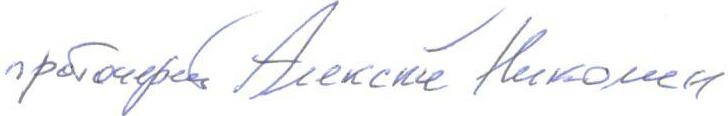 протоиерей Алексей Николин